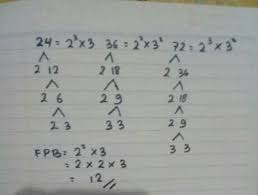 24 = 2³ × 3 36 = 2² × 3² 72 = 2³ × 3²
2 12 2 18 2 36
2 6 2 9 2 18
2 3 3 3 2 9
3 3
FPB = 2² × 3
= 2 × 2 × 3
= 12 //